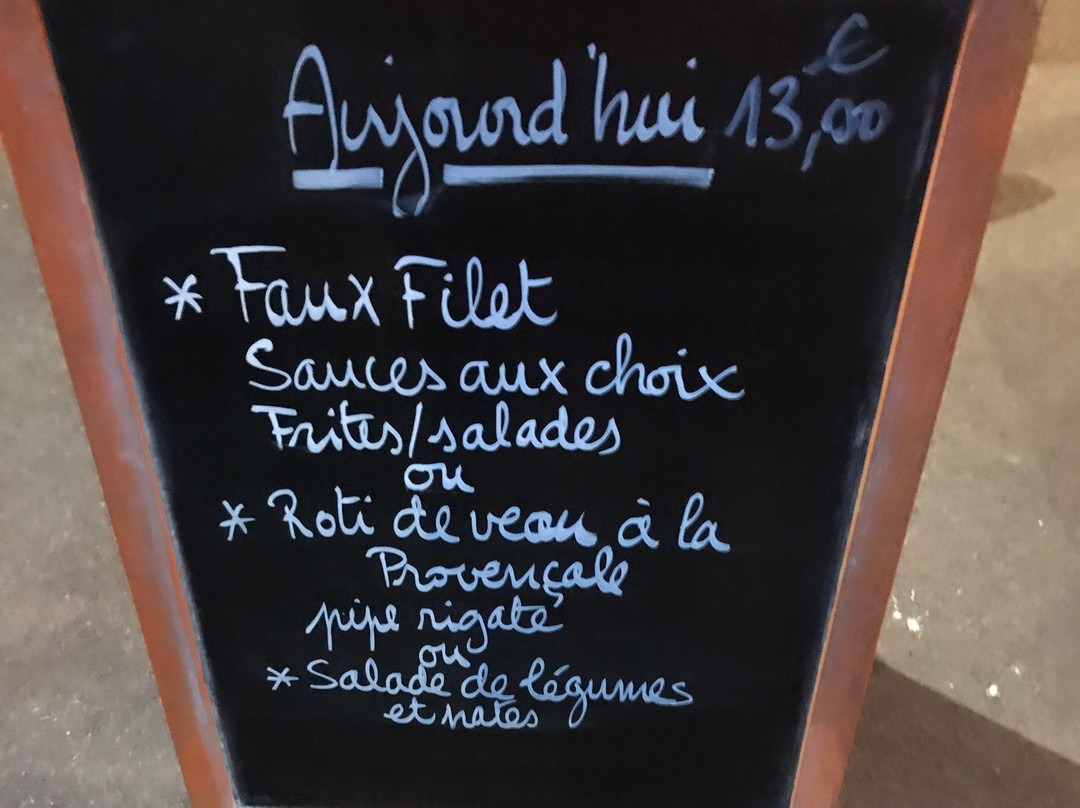 Aujourd'hui 13,00 €
* Faux Filet
Sauces aux choix
Frites/salades
ou
* Roti de veau à la
Provençale
pipe rigate
ou
* Salade de légumes
et pates